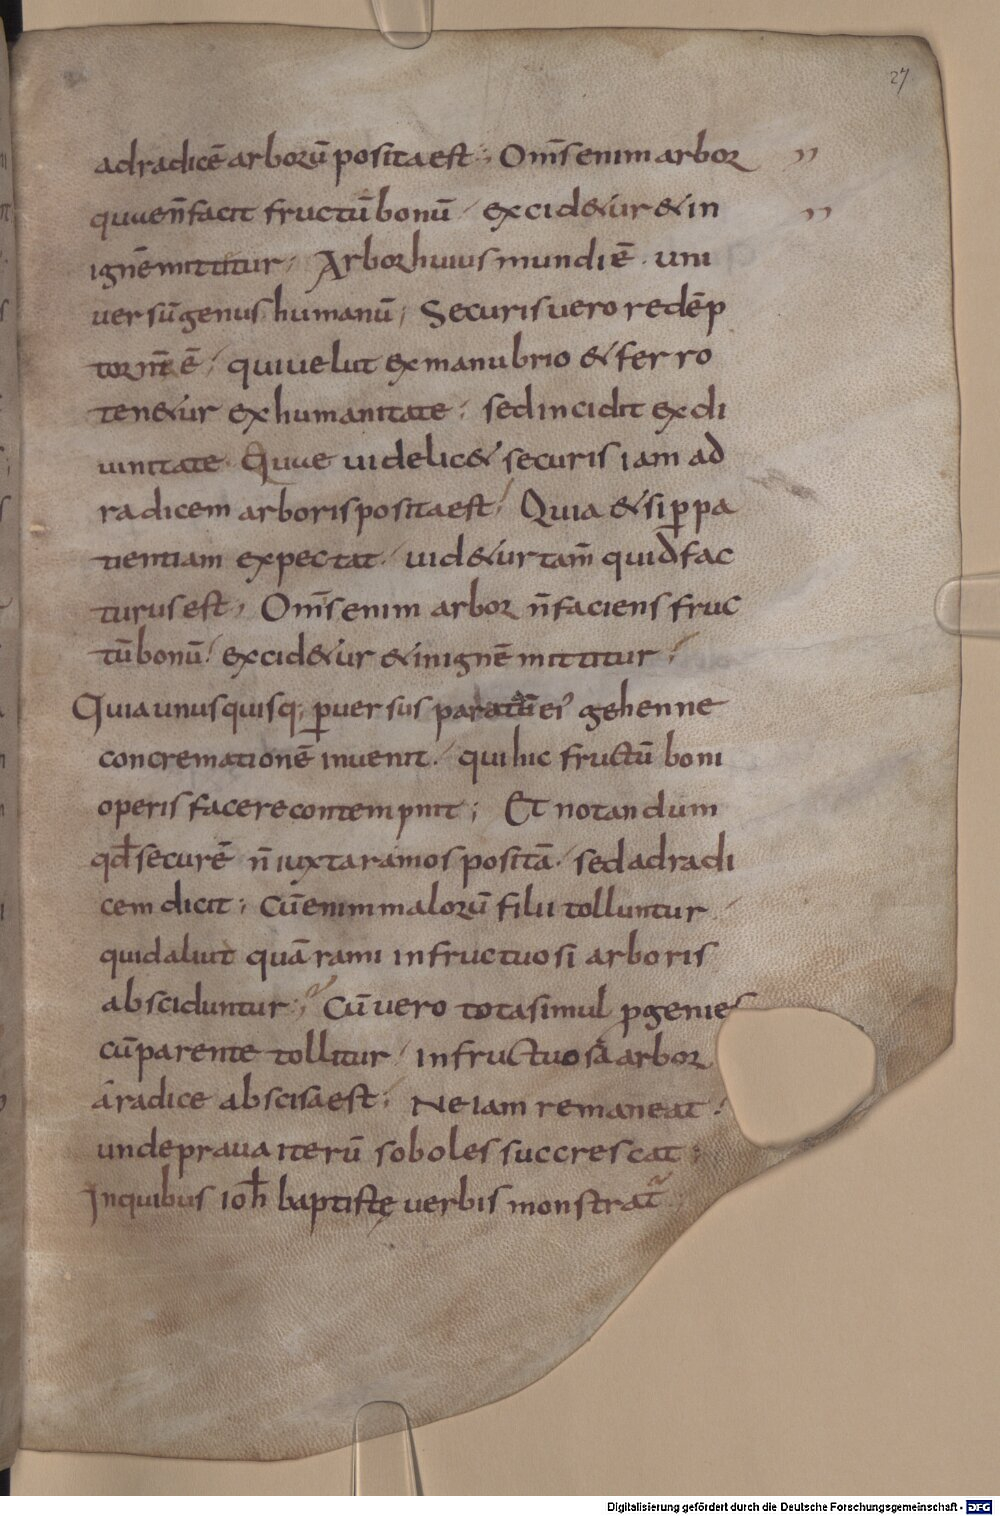 27
adradicē arborū positaest; Om̄s enim arbor ,,
quuen̄facit fructū bonū / excid&ur & in ,,
ignē mittitur; Arbor huius mundi ē. uni
uersū genus humanū; Securis uero redēp
tor nr̄ ē / qui uelut ex manubrio & ferro
ten&ur ex humanitate; sed incidit ex di
uinitate. Quue uidelic& securis iam ad
radicem arboris positaest; Quia & si ꝑ pa
tientiam expectat / uid&ur tam̄ quid fac
turus est; Om̄s enim arbor n̄ faciens fruc
tū bonū / excid&ur & inignē mittitur;
Quia unusquisq; ꝑuersus paratū ei' gehenne
concremationē inuenit / qui hic fructū boni
operis facere contempnit; Et notandum
qđ securē n̄ iuxta ramos positā / sed ad radi
cem dicit; Cū enim malorū filii tolluntur
quid aliut quā rami infructuosi arboris
absciduntur; Cū uero tota simul ꝓgenies
cū parente tollitur / infructuosa arbor
a radice abscisa est; Ne iam remaneat.
unde praua iterū soboles succrescat;
In quibus ioh̄ baptistę uerbis monstrat̃
Digitalisierung gefördert durch die Deutsche Forschungsgemeinschaft - DFG